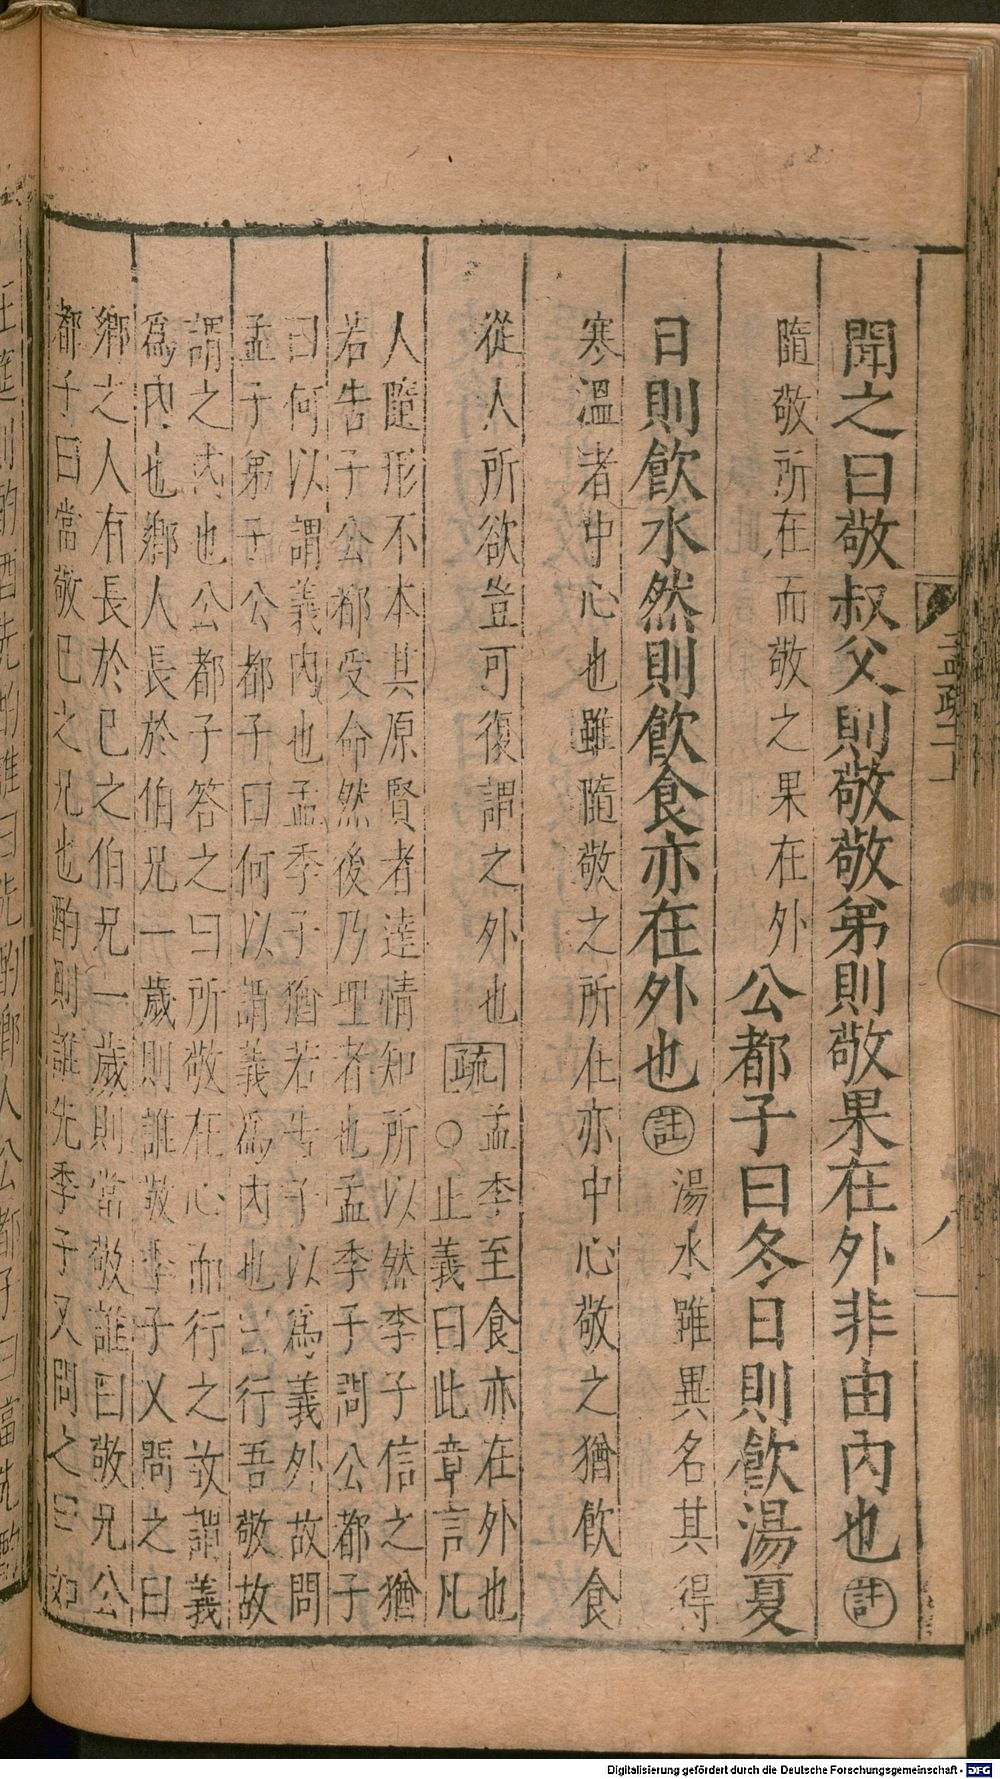 孟疏
八
聞之曰敬叔父則敬敬弟則敬果在外非由內也註
隨敬所在而敬之果在外公都子曰冬日則飲湯夏
日則飲水然則飲食亦在外也註湯水雖異名其得
寒溫者中心也雖隨敬之所在亦中心敬之猶飲食
從人所欲豈可復謂之外也疏孟季至食亦在外也
○正義曰此章言凡
人隨形不本其原賢者達情知所以然季子信之猶
若告子公都受命然後乃理者也孟季子問公都子
曰何以謂義內也孟季子猶若告子以爲義外故問
孟子弟子公都子曰何以謂義爲內也云行吾敬故
謂之內也公都子答之曰所敬在心而行之故謂義
爲內也鄉人長於伯兄一歲則誰敬季子又問之曰
鄉之人有長於己之伯兄一歲則當敬誰曰敬兄公
都子曰當敬己之兄也酌則誰先季子又問之曰如
在筵則酌酒先酌誰曰先酌鄉人公都子曰當先酌
Digitalisierung gefördert durch die Deutsche Forschungsgemeinschaft - DFG